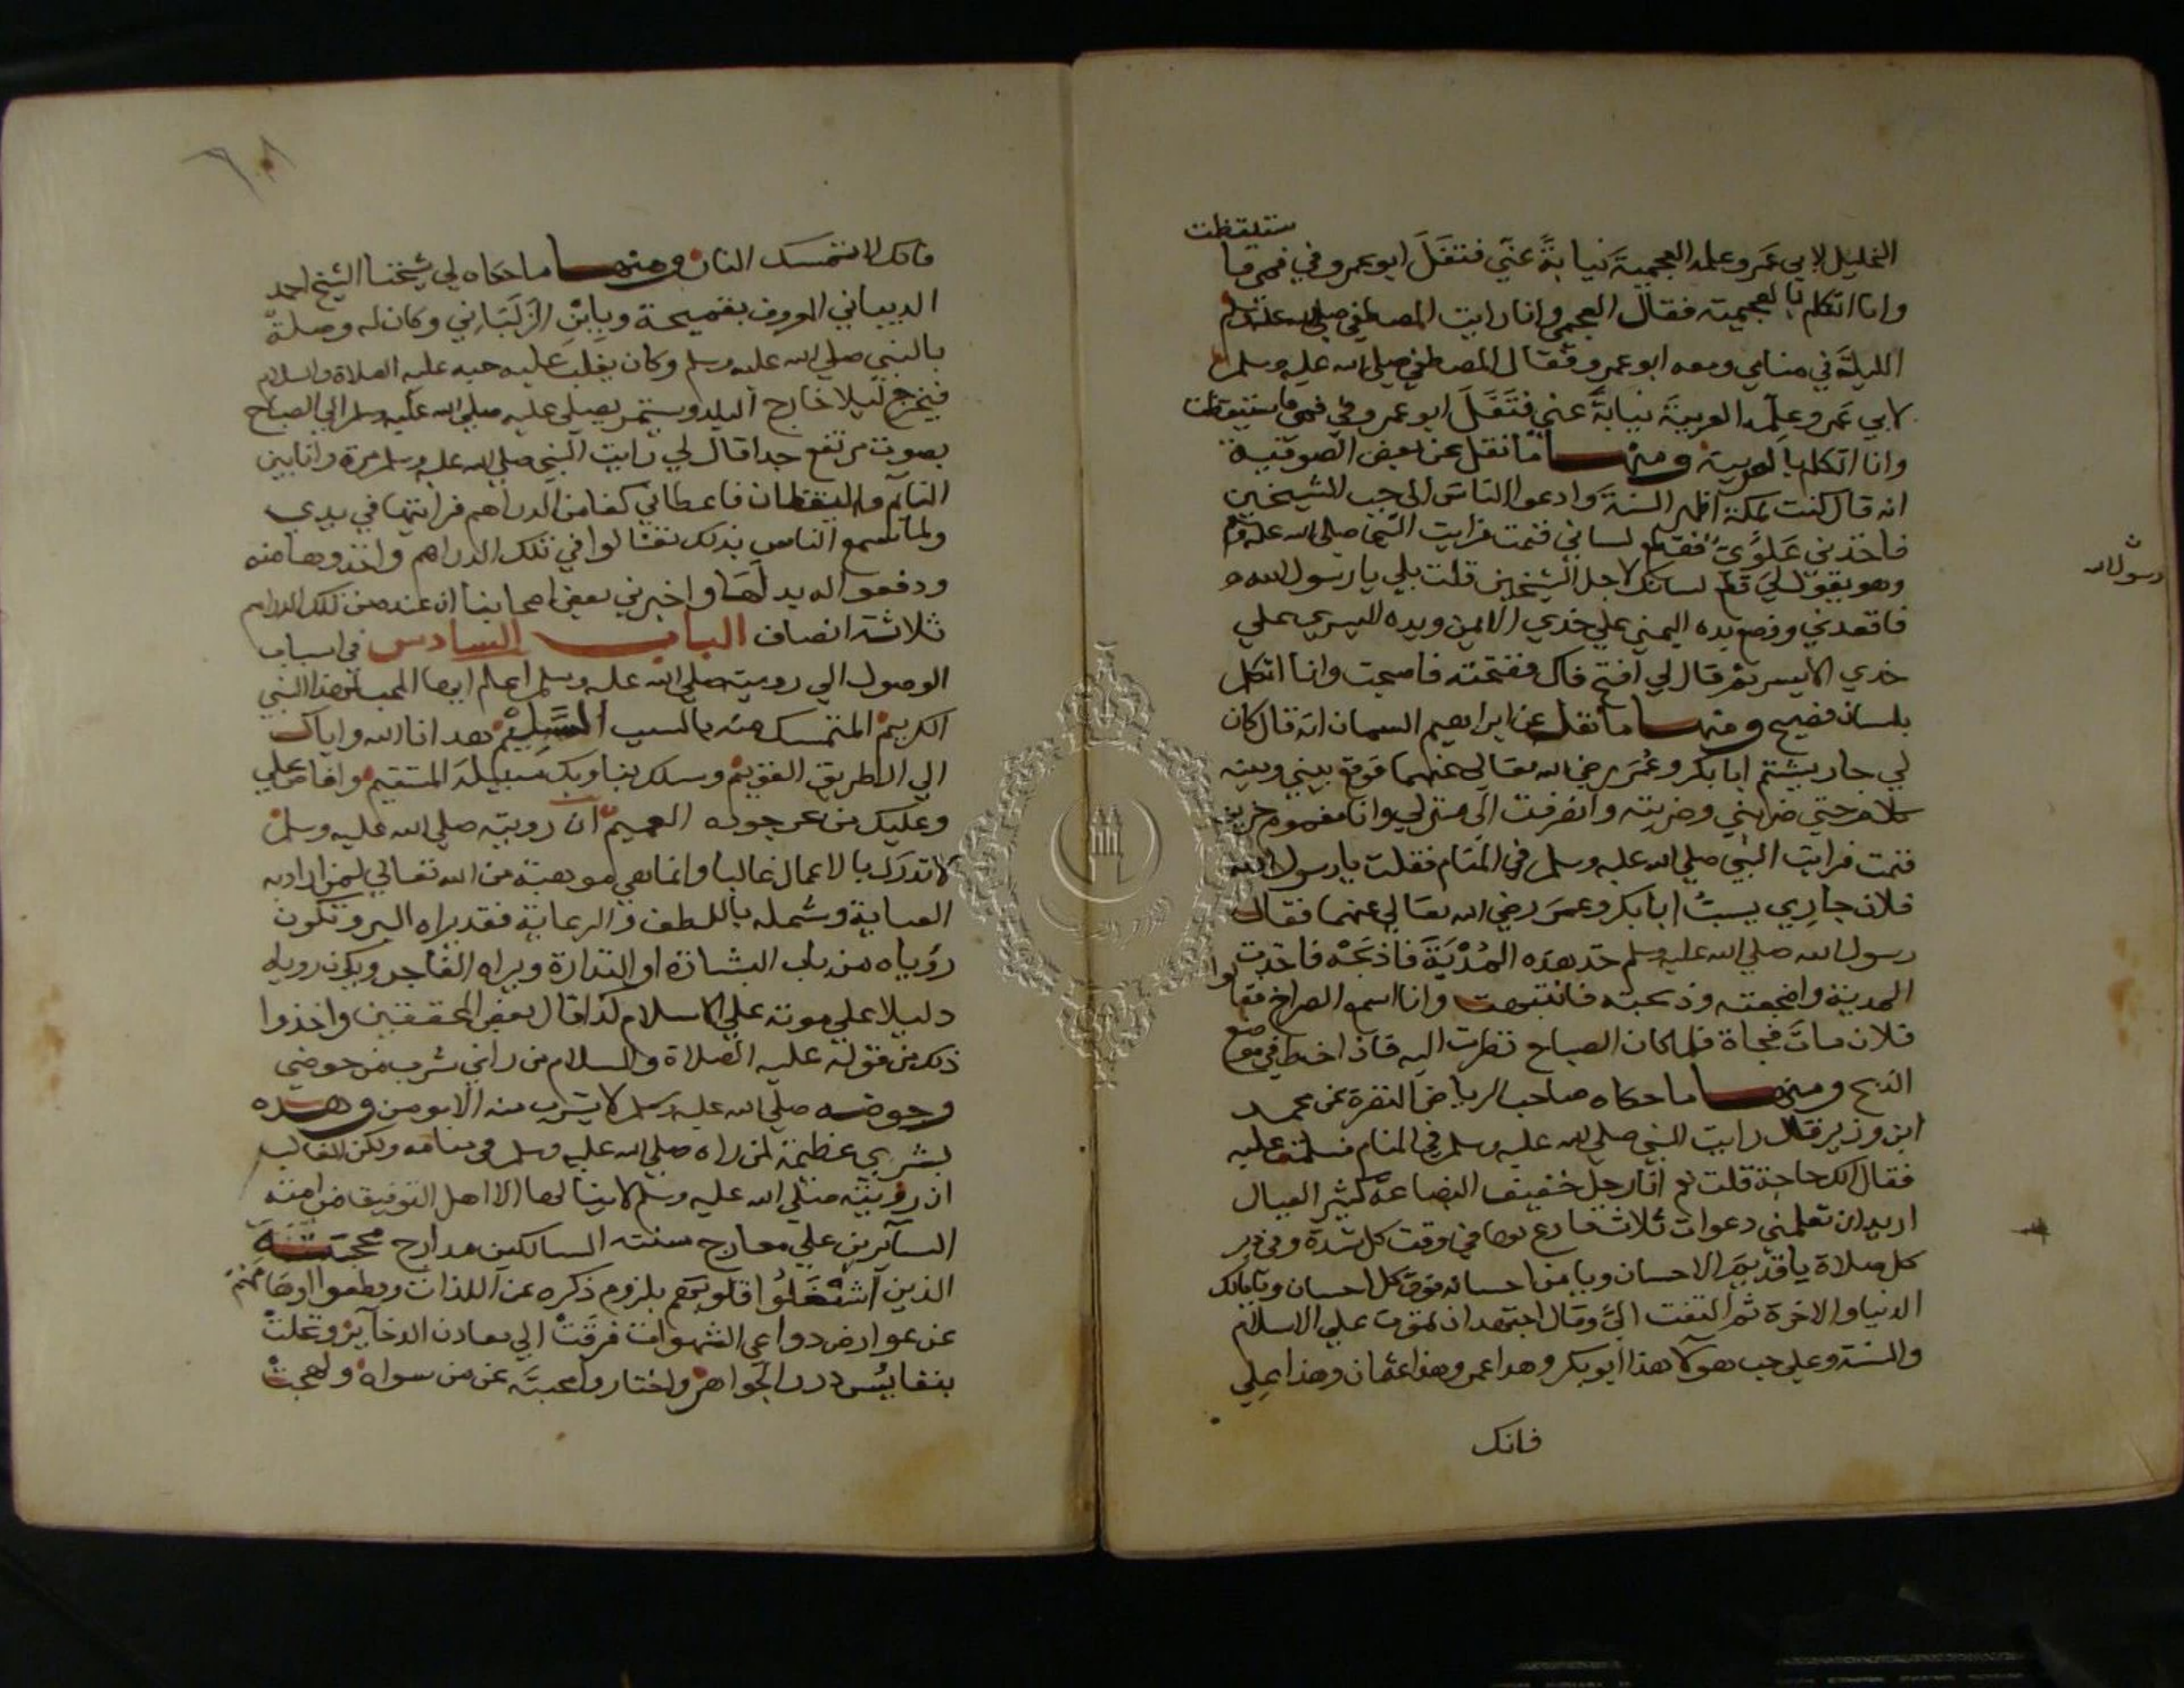 الخليل لابي عَمرو علمه العجميةَ نيابةً عنّي فتَفَلَ ابو عمرو في فمي فاستيقظت
وانا اتكلم بالعجمية فقال العجمي وانا رايت المصطفي صلي الله عليه وسلم
الليلة في منامي ومعه ابو عمرو فقال المصطفي صلي الله عليه وسلم
لابي عَمرو علِّمه العربيةَ نيابةً عني فتَفَلَ ابو عمرو في فمي فاستيقظت
وانا اتكلم بالعربية ومنها ما نقل عن بعض الصوفية
انه قال كنت بمكة اظهر السنة وادعوا الناس الي حب الشيخين
فاخذني عَلَوِيّ فقطع لساني فنمت فرايت النبي صلي الله عليه وسلم
وهو يقول لي قطع لسانك لاجل الشيخين قلت بلي يا رسول الله
رسول الله
فاقعدني ووضع يده اليمني علي خدي الايمن ويده اليسري علي
خدي الايسر ثم قال لي افتح فاك ففتحته فاصبحت وانا اتكلم
بلسان فصيح ومنها ما نقل عن ابراهيم السمان انه قال كان
لي جار يشتم ابا بكر وعُمَر رضي الله تعالي عنهما فوقع بيني وبينه
كلام حتي ضربني وضربته وانصرفت الي منزلي وانا مغموم حزين
فنمت فرايت النبي صلي الله عليه وسلم في المنام فقلت يا رسول الله
فلان جارِي يسبُّ ابا بكر وعمرَ رضي الله تعالي عنهما فقال
رسول الله صلي الله عليه وسلم خذ هذه المُدْيَةَ فاذبَحْه فاخذت
المدية واضجعته وذبحته فانتبهت وانا اسمع الصراخ فقالوا
فلان ماتَ فجاة فلما كان الصباح نظرت اليه فاذا خط في موضع
الذبح ومنها ما حكاه صاحب الرياض النضرة عن محمد
ابن وزير قال رايت النبي صلي الله عليه وسلم في المنام فسلمت عليه
فقال الك حاجة قلت نعم انا رجل خفيف البضاعة كثير العيال
اريد ان تعلمني دعوات ثلاث ادع بها في وقت كل شدة وفي دبر
كل صلاة يا قديمَ الاحسان ويا من احسانه فوق كل احسان ويا مالك
الدنيا والاخرة ثم التفت اليَّ وقال اجتهد ان تموت علي الاسلام
والسنة وعلي حب هولآء هذا ابو بكر وهذا عمر وهذا عثمان وهذا علي
فانك
فانك لا تمسك النار ومنها ما حكاه لي شيخنا الشيخ احمد
المعروف وبابْنِ وكان له وصلةٌ
بالنبي صلي الله عليه وسلم وكان يغلب عليه حبه عليه الصلاة والسلام
فيخرج ليلا خارج البلد ويستمر يصلي عليه صلي الله عليه وسلم الي الصباح
بصوت مرتفع جدا قال لي رايت النبي صلي الله عليه وسلم مرة وانا بين
النآئم واليقظان فاعطاني كفا من الدراهم فرايتها في يدي
ولما سمع الناس بذلك تغالوا في تلك الدراهم واخذوها منه
ودفعوا له بدلَها واخبرني بعض اصحابنا ان عنده من تلك الدراهم
ثلاثة انصاف الباب السادس في اسباب
الوصول الي رويته صلي الله عليه وسلم اعلم ايها المحب لهذا النبي
الكريم المتمسك منه بالسبب هدانا الله واياك
الي الطريق القويم وسلك بنا وبك سبيله المستقيم وافاض علي
وعليك من بحر جوده العميم ان رويته صلي الله عليه وسلم
لا تدرك بالاعمال غالبا وانما هي موهبة من الله تعالي لمن اراد به
العناية وشمله باللطف والرعاية فقد يراه البر وتكون
رؤياه من باب البشارة او النذارة ويراه الفاجر ويكون روياه
دليلا علي موته علي الاسلام كذا قال بعض المحققين واخذوا
ذلك من قوله عليه الصلاة والسلام من راني شرب من حوضي
وحوضه صلي الله عليه وسلم لا يشرب منه الا مومن وهذه
بشري عظيمة لمن راه صلي الله عليه وسلم في منامه ولكن الغالب
ان رؤيته صلي الله عليه وسلم لا ينالها الا اهل التوفيق من امته
السآئرين علي معارج سنته السالكين مدارج محبته
الذين اشْتَغَلُوا قلوبهم بلزوم ذكره عن اللذات وفطموا اوهامهم
عن عوارض دواعي الشهوات فرقتْ الي معادن الذخآئر وتحلتْ
بنفايُس درر الجواهر واختاروا محبته عن من سواه ولهجتْ